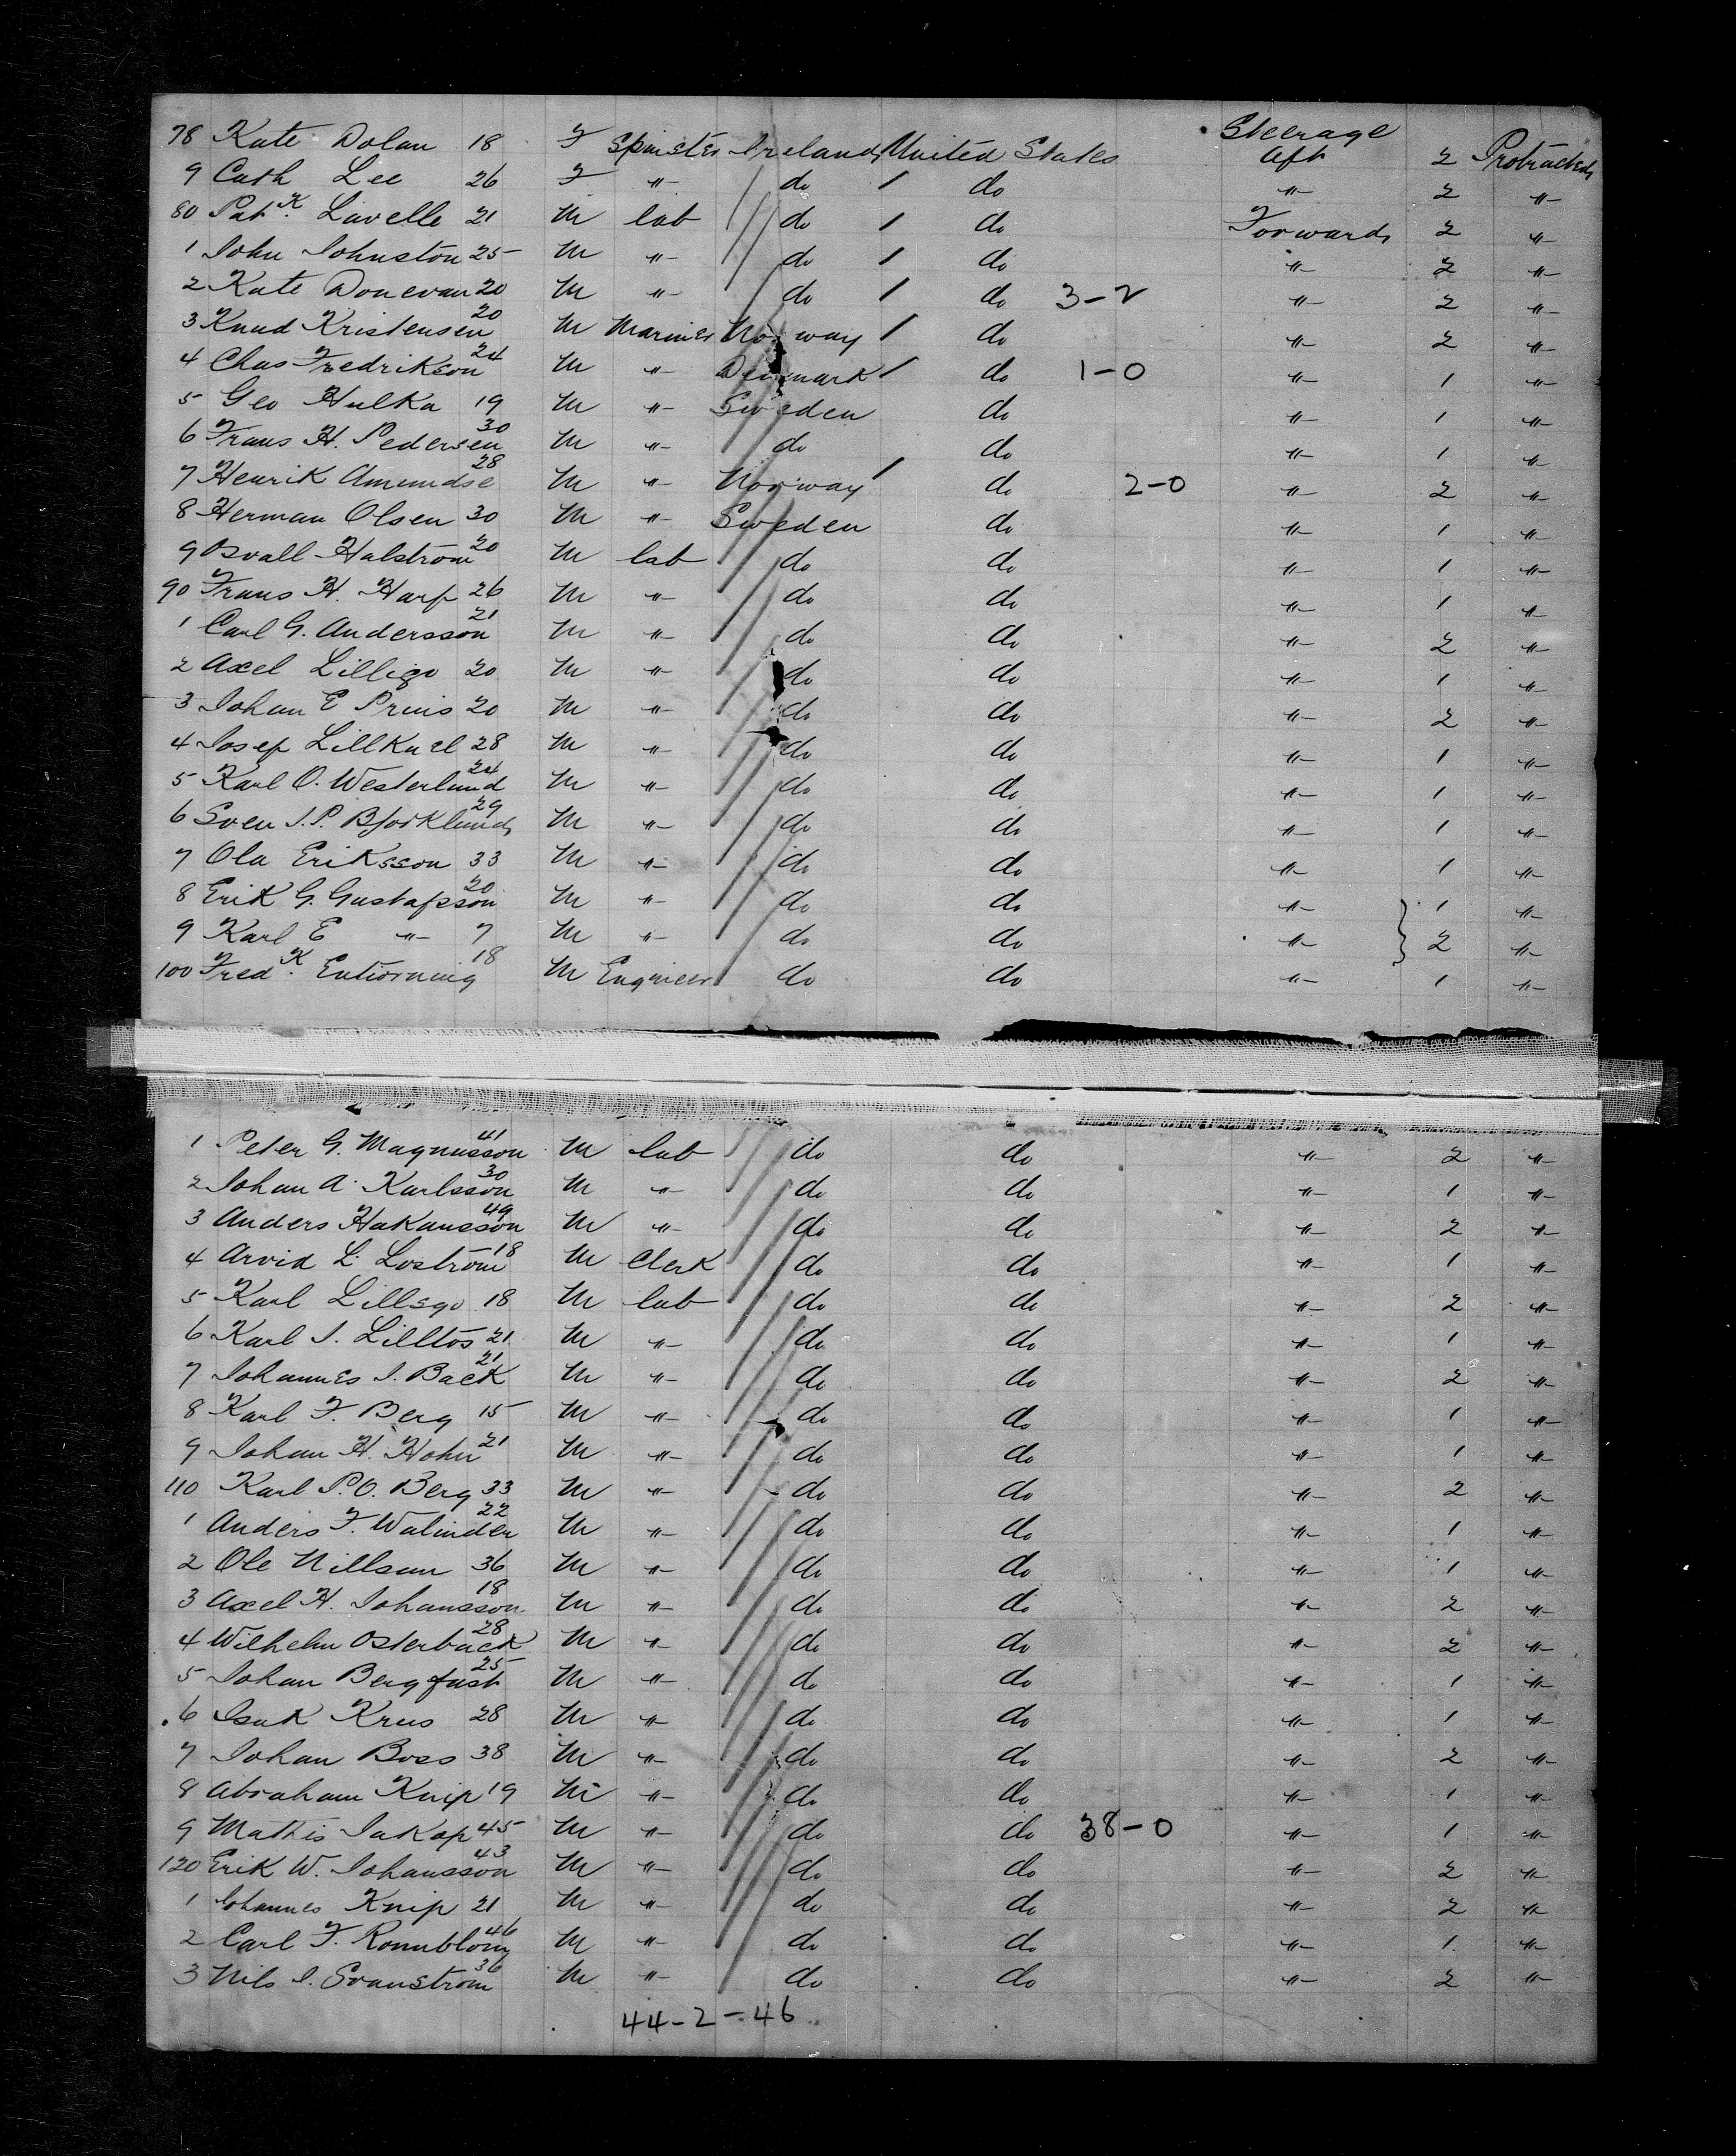 78 Kate Dolan 18 F Spinster Ireland United States Steerage Aft 2 Protracted
9 Cath Lee 26 F " do do " 2 "
80 Patk. Lavelle 21 M lab do do Forward 2 "
1 John Johnston 25 M " do do " 2 "
2 Kate Donevan 20 M " do do 3-2 " 2 "
3 Knud Kristensen 20 M Mariner Norway do " 2 "
4 Chas Fredrikson 24 M " Denmark do 1-0 " 1 "
5 Geo Hulka 19 M " Sweden do " 1 "
6 Frans H. Pedersen 30 M " do do " 1 "
7 Henrik Amundse 28 M " Norway do 2-0 " 2 "
8 Herman Olsen 30 M " Sweden do " 1 "
9 Osvall Halstrom 20 M lab do do " 1 "
90 Frans H. Harp 26 M " do do " 1 "
1 Carl G. Andersson 21 M " do do " 2 "
2 Axel Lilligo 20 M " do do " 1 "
3 Johan E Prins 20 M " do do " 2 "
4 Josef Lillkuel 28 M " do do " 1 "
5 Karl O. Westerlund 24 M " do do " 1 "
6 Sven J.P. Bjorklund 29 M " do do " 1 "
7 Ola Eriksson 33 M " do do " 1 "
8 Erik G. Gustafsson 20 M " do do " 1 "
9 Karl E " 7 M " do do " 2 "
100 Fredk. Entiorning 18 M Engineer do do " 1 "
1 Peter G. Magnusson 41 M lab do do " 2 "
2 Johan A. Karlsson 30 M " do do " 1 "
3 Anders Hakansson 49 M " do do " 2 "
4 Arvid L. Lostrom 18 M Clerk do do " 1 "
5 Karl Lillsgo 18 M lab do do " 2 "
6 Karl J. Lilltos 21 M " do do " 1 "
7 Johannes J. Back 21 M " do do " 2 "
8 Karl F. Berg 15 M " do do " 1 "
9 Johan H. Hohn 21 M " do do " 1 "
110 Karl P.O. Berg 33 M " do do " 2 "
1 Anders F. Walinder 22 M " do do " 1 "
2 Ole Nillson 36 M " do do " 1 "
3 Axel H. Johansson 18 M " do do " 2 "
4 Wilhelm Osterback 28 M " do do " 2 "
5 Johan Bergfast 25 M " do do " 1 "
6 Isak Krus 28 M " do do " 1 "
7 Johan Boss 38 M " do do " 2 "
8 Abraham Knip 19 M " do do " 1 "
9 Mathis Jakop 45 M " do do 38-0 " 1 "
120 Erik W. Johansson 43 M " do do " 2 "
1 Johannes Knip 21 M " do do " 2 "
2 Carl F. Ronnblom 46 M " do do " 1 "
3 Nils J. Svanstrom 36 M " do do " 2 "
44-2-46